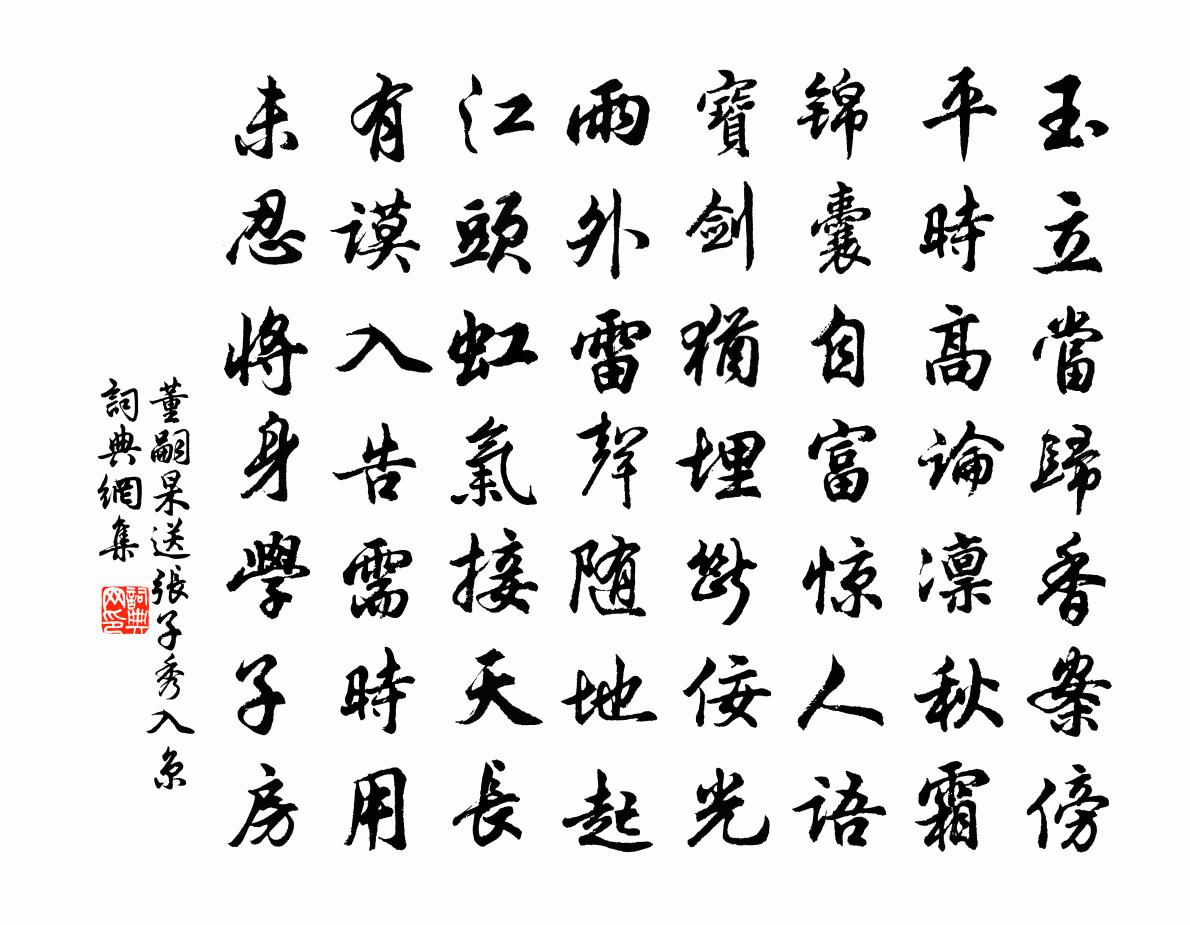 玉立當歸香案傍
平時高論凛秋霜
锦囊自富惊人語
寶剑猶埋斷佞光
雨外雷聲随地起
江頭虹氣接天長
有謨入告需時用
未忍將身學子房
董嗣杲送張子秀入京
詞典網集
詞典网印